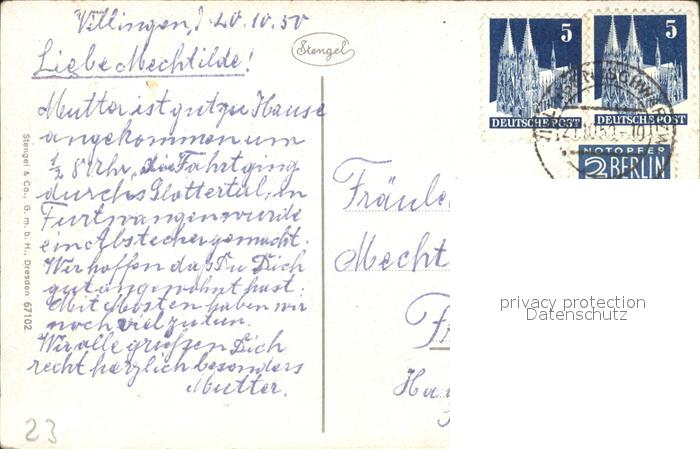 Villingen, 20.10.50
Liebe Mechtilde!
Mutter ist gut zu Hause
angekommen um
1/2 8 Uhr, die Fahrt ging
durchs Glottertal, in
Furtwangen wurde
ein Abstecher gemacht.
Wir hoffen daß Du Dich
gut angewöhnt hast.
Mit Mosten haben wir
noch viel zu tun.
Wir alle grüßen Dich
recht herzlich besonders
Mutter.
23
Stengel
Stengel & Co., G. m. b. H., Dresden 67102
5
DEUTSCHE POST
5
DEUTSCHE POST
NOTOPFER
2 BERLIN
Fräule
Mecht
privacy protection
Datenschutz